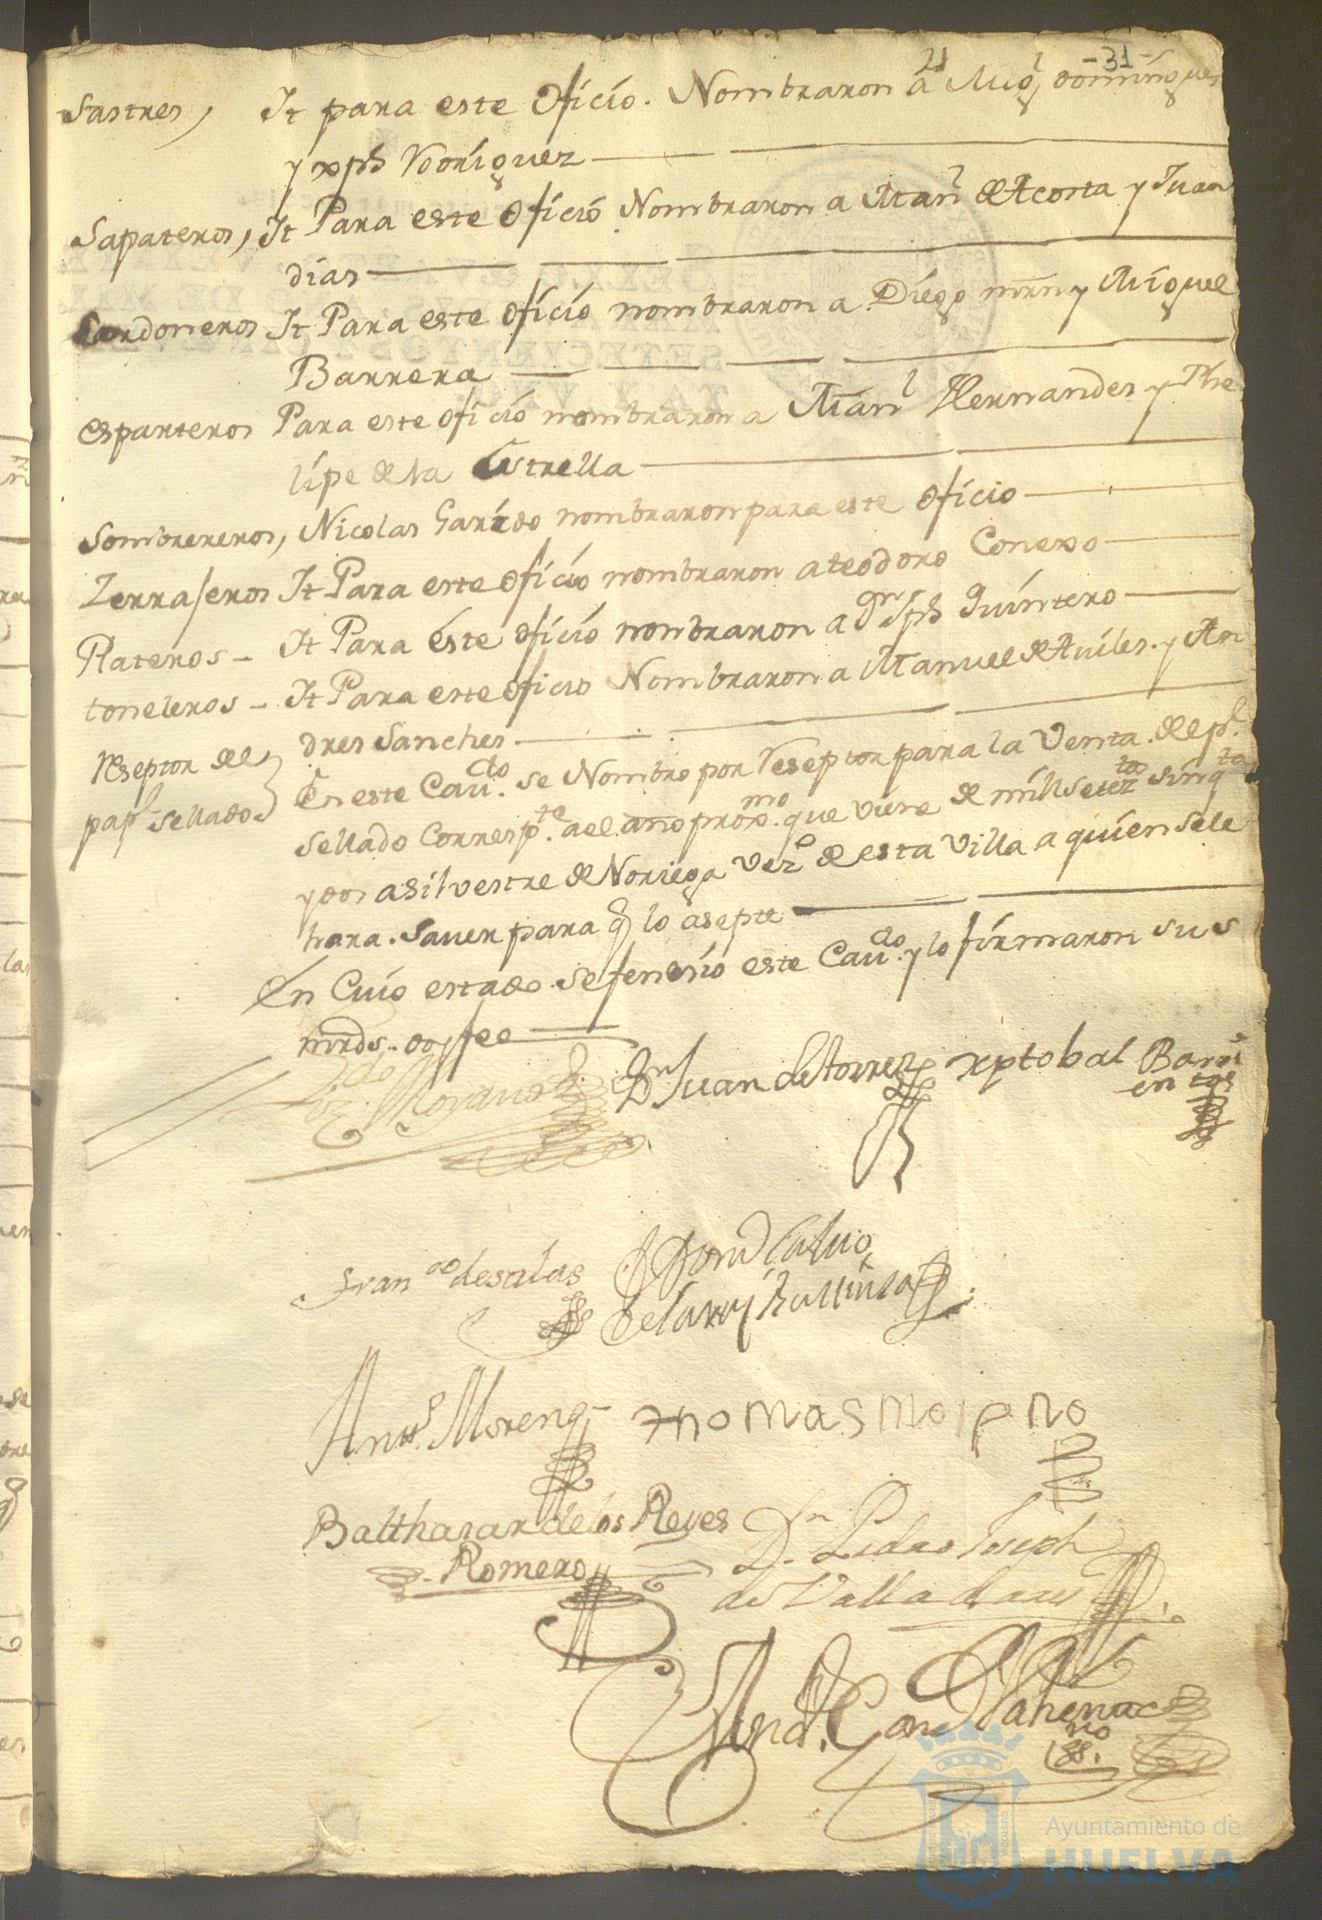 -31-
21
Sastres, It para este oficio. Nombraron a Migl dominguez
y xpl Rodriguez
Sapateros, It Para este oficio Nombraron a Manl de Acosta y Juan
dias
Cardoneros It Para este oficio nombraron a Diego mrn y Miguel
Barrera
esparteros Para este oficio nombraron a Manl Hernandes y Phe
lipe de la Estrella
Sombrereros, Nicolas Garido nombraron para este oficio
Zerrajeros It Para este oficio nombraron a teodoro Conexo
Plateros - It Para este oficio nombraron a Dn Jph Quintero
toneleros - It Para este oficio Nombraron a Manuel de Aviles. y An
dres Sanches.
Reseptor del
papl sellado
En este Cavdo. se Nombro por Reseptor para la Venta. del pl.
sellado Correspte. a el año proxmo. que viene de mill setezto sinqta
y dos a silvestre de Noriega Vezo de esta Villa a quien se le
hara. Saver para q lo asepte
En Cuio estado se fenesio este Cavdo. y lo firmaron sus
mrds. doy fee
Dn Juan de Torres xptobal Barri
entos
Franco de silas
Anto Moreno thomas moreno
Balthasar de los Reyes
Romero
Dn. Pedro Joseph
de Valladares
Ssno.
Ayuntamiento de
HUELVA